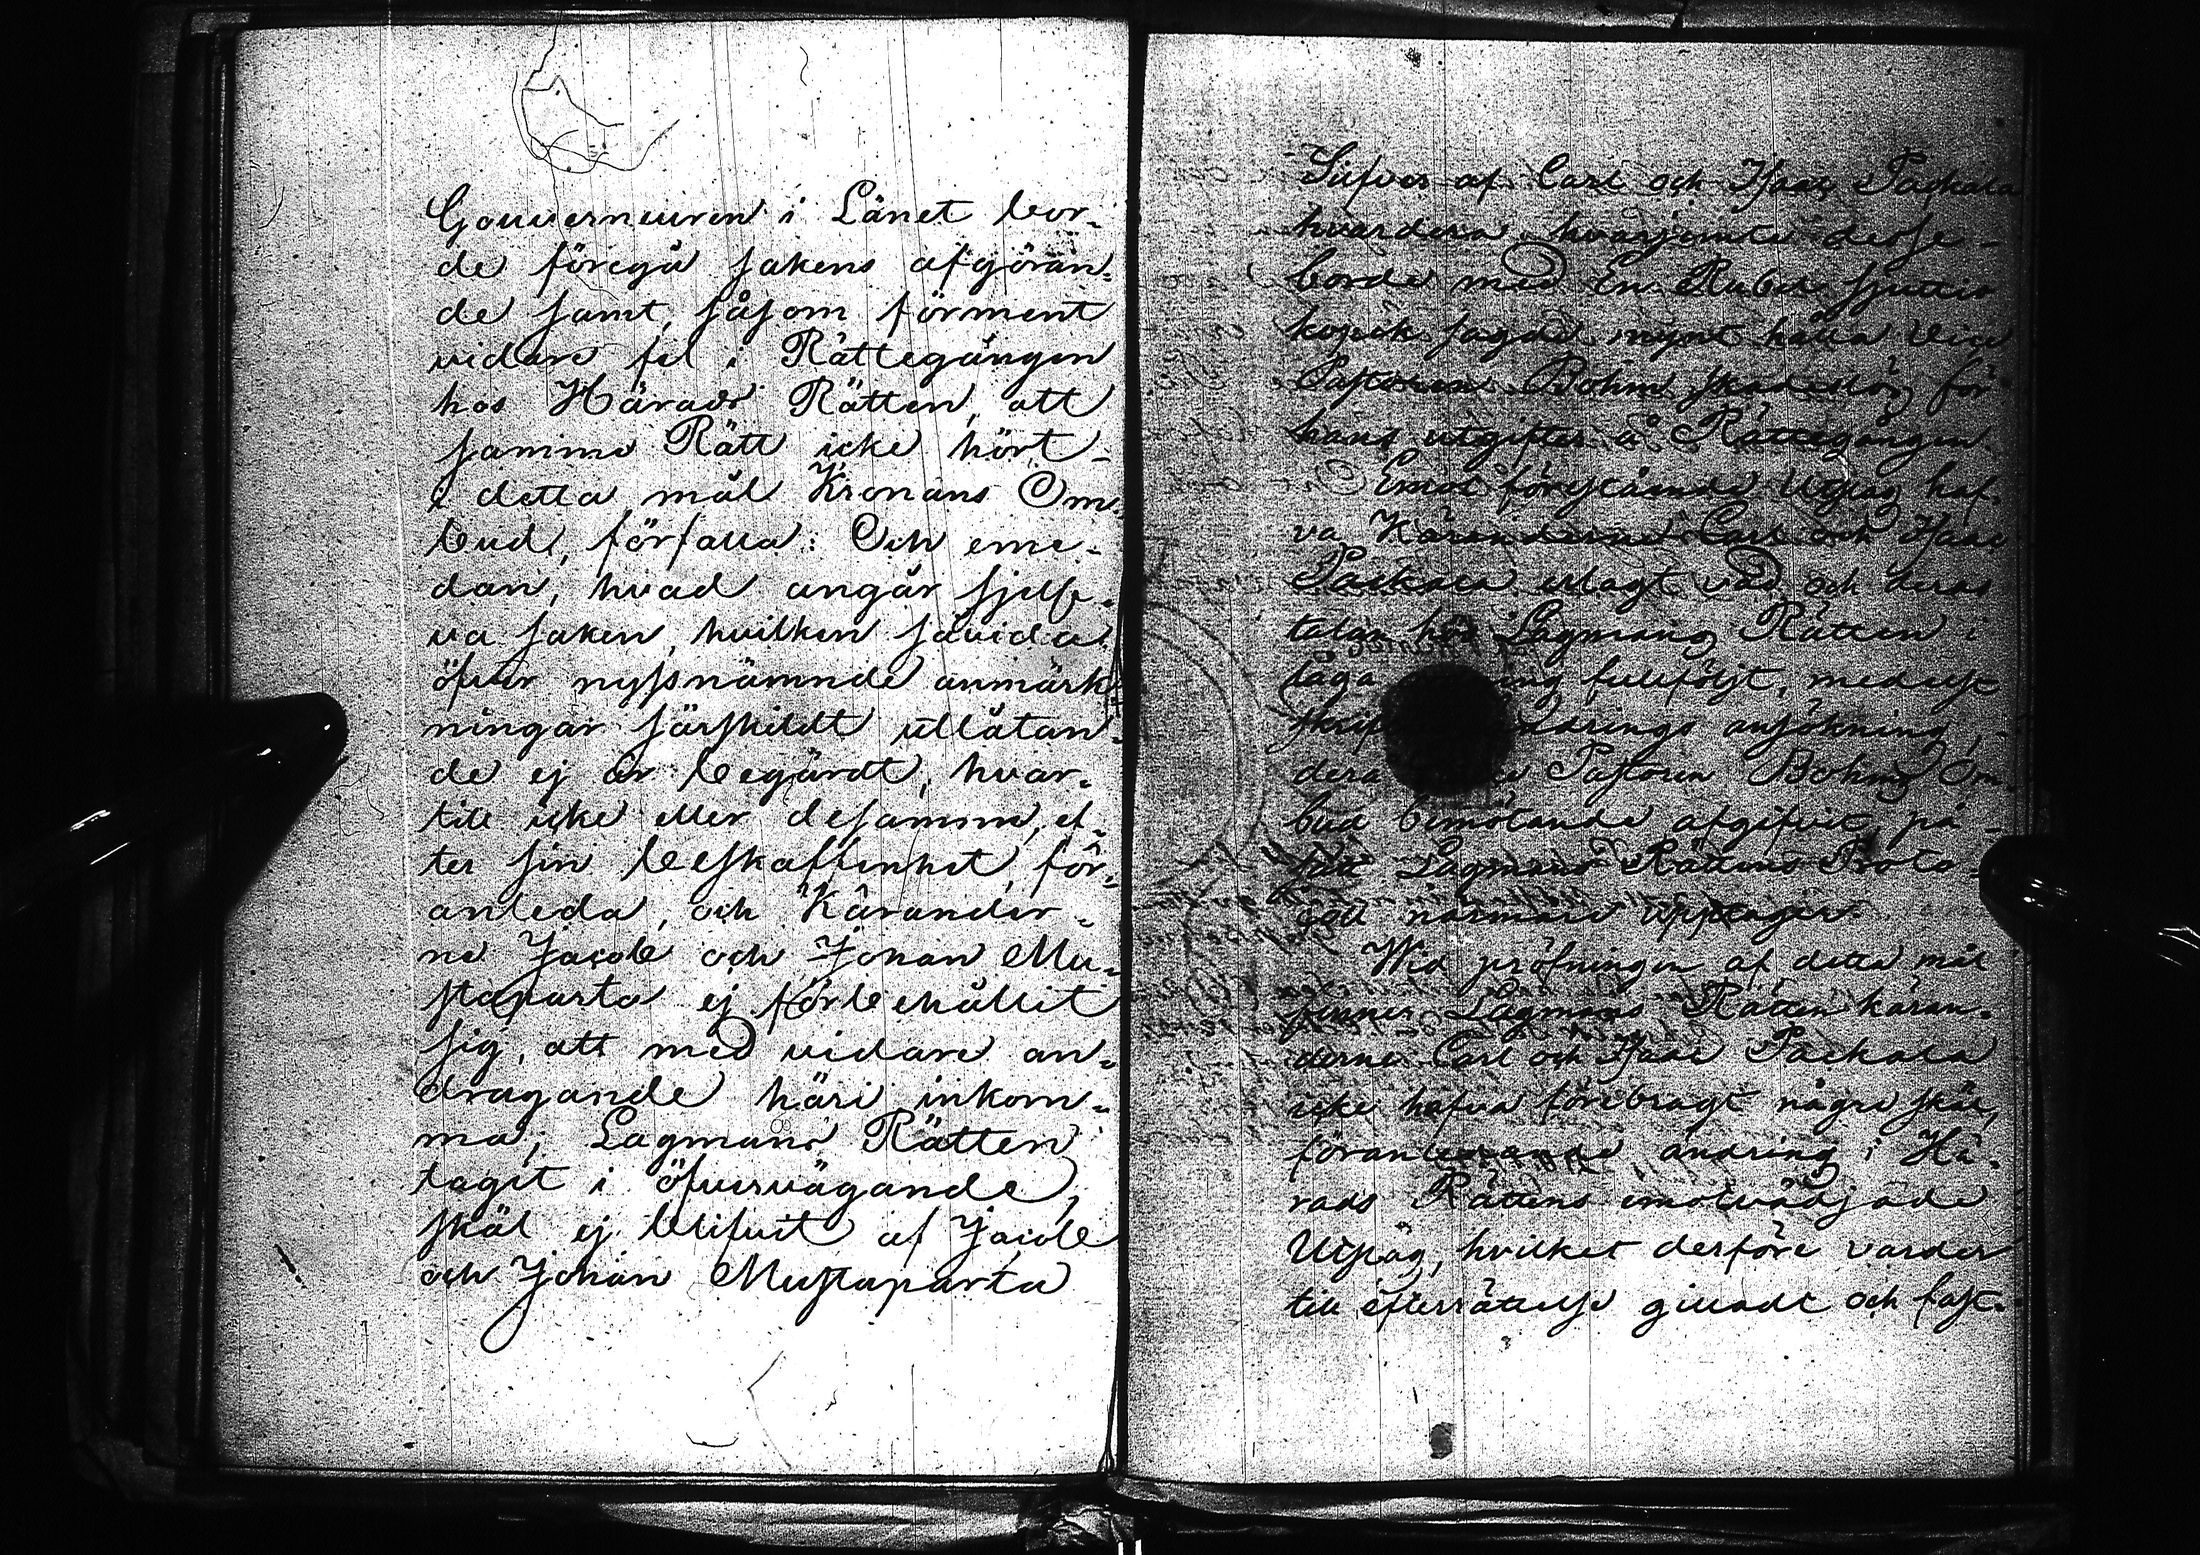 Gouverneuren i Länet bor-
de föregå sakens afgöran-
de samt, såsom förment
vidare fel i Rättegången
hos Härads Rätten, att
samma Rätt icke hört
i detta mål Kronans Om-
bud, förfalla: Och eme-
dan, hvad angår sjelf-
va saken, hvilken såvida
öfver nyssnämnde anmärk-
ningar särskildt utlåtan-
de ej är begärdt, hvar-
till icke eller desamma, ef-
ter sin beskaffenhet, för-
anleda, och Kärander-
ne Jacob och Johan Mu-
staparta ej förbehållit
sig, att med vidare an-
dragande häri inkom-
ma; Lagmans Rätten
tagit i öfvervägande,
skäl ej blifvit af Jacob
och Johan Mustaparta
Silfver af Carl och Isaac Packala
hvardera, hvarjemte desse
borde med En Rubel sjuttio
kopek sagde mynt hålla Vice
Pastoren Bohm skadeslös för
hans utgifter å Rättegången.
Emot förestående Utslag haf-
va Käranderne Carl och Isaac
Packala erlagt vad och deras
talan hos Lagmans Rätten i
laga ing fullföljt, medelst
ändrings ansökning,
dera Pastoren Bohms Om-
bud bemötande afgifvit, på
sätt Lagmans Rättens Proto-
coll närmare upptager.
Wid pröfningen af detta mål
finner Lagmans Rätten käran-
derne Carl och Isaac Packala
icke hafva förebragt några skäl,
föranledande ändring i Hä-
rads Rättens emotvädjade
Utslag, hvilket derföre varder
till efterrättelse gilladt och fast-